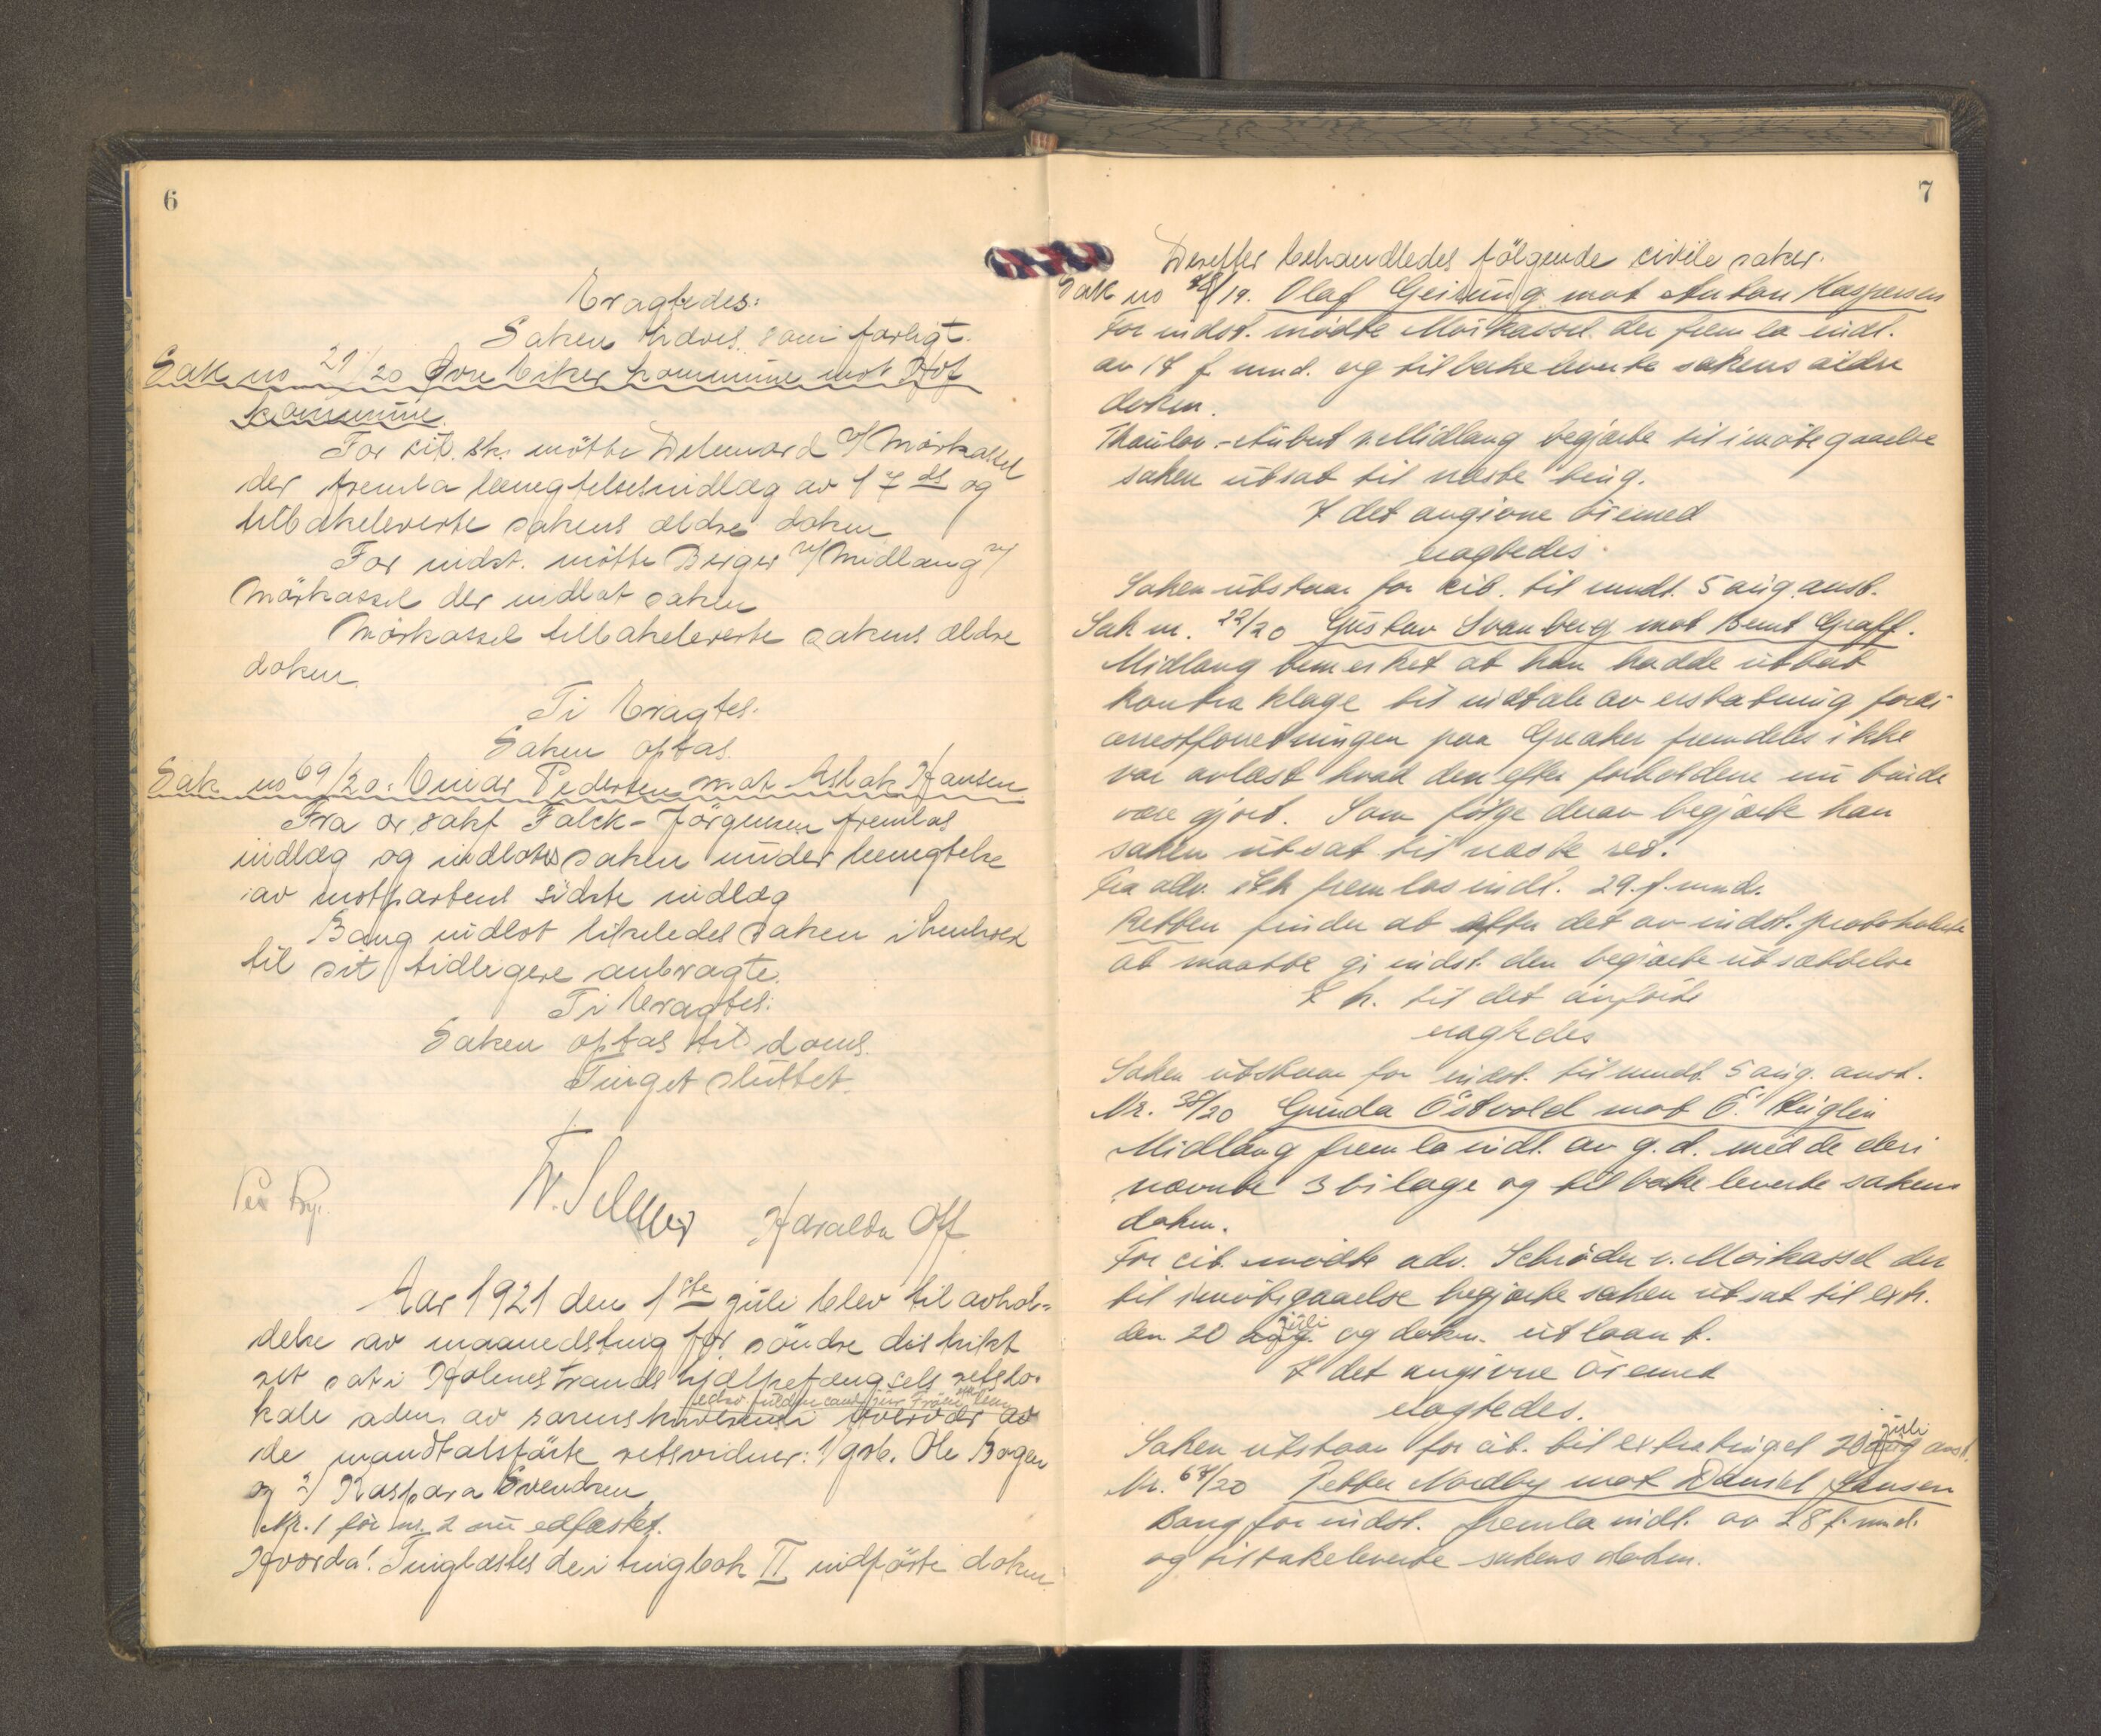 6
Eragtedes:
Saken utsæt som forligt.
Sak no 29/20 Øvre Eiker kommune mot Hof
kommune.
For cit. sk. mötte Delemord v/ Mörkassel
der fremla benegtelsesindlæg av 17 ds og
tilbakeleverte sakens ældre dokm
For indst. mötte Berger v/ Midlang v/
Mörkassel der indlot saken
Mörkassel tilbakeleverte sakens ældre
dokm.
Ti Eragtes:
Saken optas.
Sak no 69/20: Einar Pedersen mot Aslak Hansen
Fra or. sakf Falck-Jörgensen fremlas
indlæg og indlotes saken under benegtelse
av motpartens sidste indlæg
Bang indlot likeledes saken i henhold
til sit tidligere anbragte.
Ti Eragtes:
Saken optas til doms.
Tinget sluttet.
Haralda Off
Aar 1921 den 1ste juli blev til avhol-
delse av maanedsting for söndre distrikt
ret sat i Holmestrands hjælpefængsels retslo-
kale adm. av sorenskriverens
de mandtalsförte retsvidner: 1/ grb. Ole Bogen
og 2/ Kaspara Evendsen
Nr. 1 för nr. 2 nu edfæstet.
Hvorda! Tinglæstes de i tingbok II indförte dokm.
7
Derefter behandledes fölgende civile saker.
Sak no 48/19. Olaf Geirung mot Anton Kaspersen
For indst. mödte Mörkassel der fremla indl.
av 17 f. mnd. og tilbakeleverte sakens ældre
dokm.
Thaulow-Aubert v. Midlang begjærte til imötegaaelse
saken utsat til næste ting.
I det angivne öiemed
eragtedes
Saken utstaar for cit. til mndt. 5 aug. anst.
Sak nr. 22/20 Gustav Svanberg mot Bernt Graff.
Midlang bemerket at han hadde uttat
kontraklage til indtale av erstatning fordi
arrestforretningen paa Greaker fremdeles ikke
var avlæst hvad den efter forholdene nu burde
være gjort. Som fölge derav begjærte han
saken utsat til næste ret.
Fra adv. fremlas indl. 29. f. mnd.
Retten finder at efter det av indst. protokollerte
at maatte gi indst. den begjærte utsættelse
I h. til det anförte
eragtedes
Saken utstaar for indst. til mndt. 5 aug. anst.
Nr. 38/20 Gunda Östvold mot Ö. Huglin
Midlang fremla indl. av g. d. med de deri
nævnte 3 bilage og tilbakeleverte sakens
dokm.
For cit. mödte adv. Schröder v. Mörkassel der
til imötegaaelse begjærte saken utsat til extr.
den 20 juli og dokm. utlaant.
I det angivne öiemed
eragtedes.
Saken utstaar for cit. til extratinget 20 juli anst.
Nr. 67/20 Petter Nordby mot Daniel Hansen
Bang for indst. fremla indl. av 28 f. mnd.
og tilbakeleverte sakens dokm.